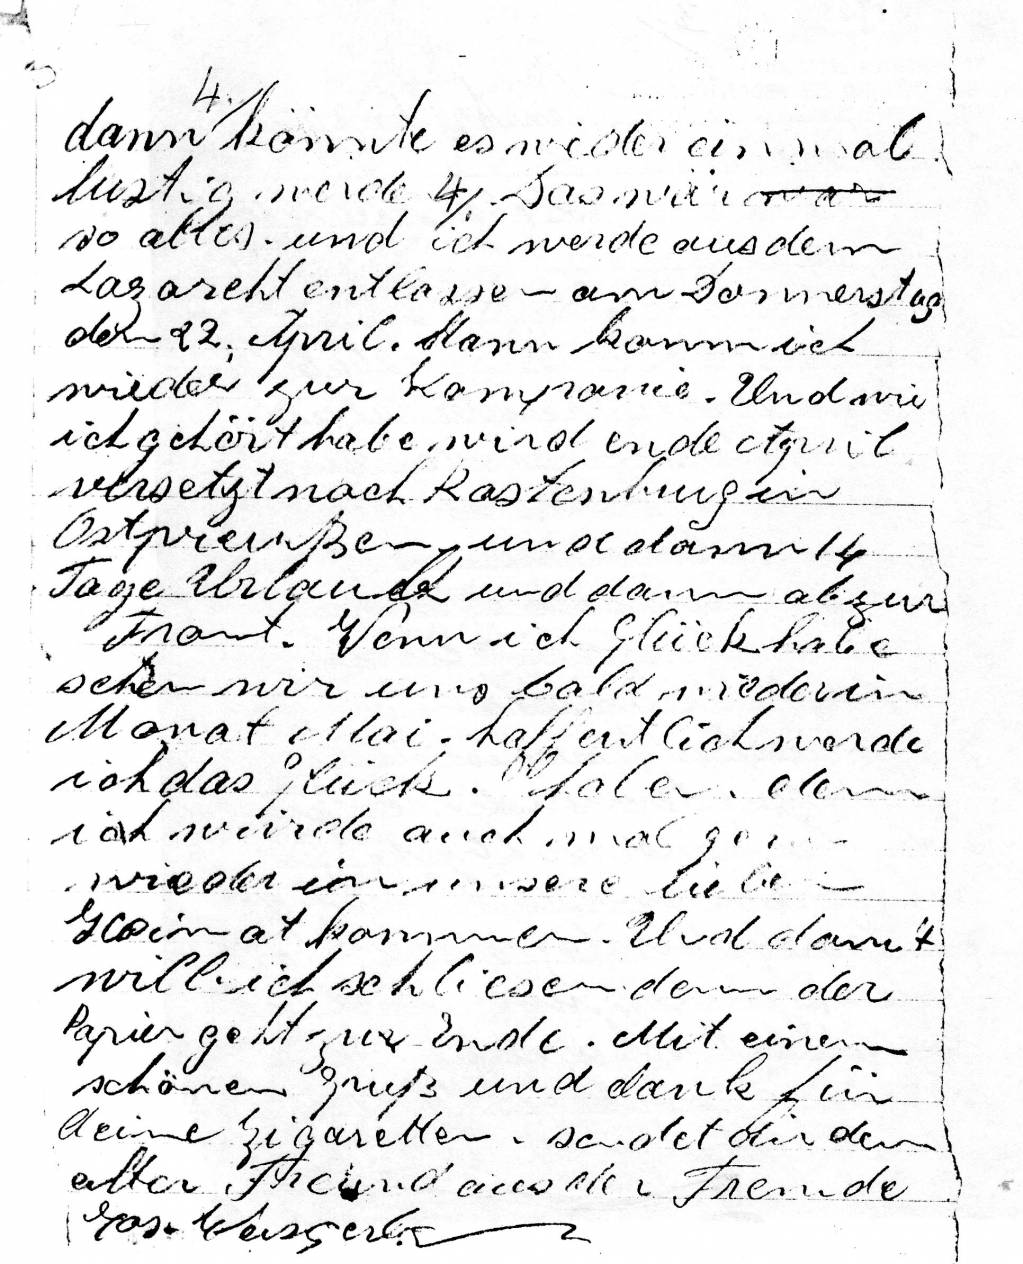 4.
dann könnte es wieder einmal
lustig werde 4/. Das wär war
so alles. und ich werde aus dem
Lazareht entlassen am Donnerstag
den 22. April. Dann komm ich
wieder zur Kompanie. Und wie
ich gehört habe wird ende April
versetzt nach Rastenburg in
Ostpreußen und dann 14
Tage Urlaub und dann ab zur
Front. Wenn ich Glück habe
sehen wir uns bald wieder in
Monat Mai. hoffentlich werde
ich das Glück. haben. denn
ich würde auch mal gern
wieder in unsere lieben
Heimat kommen. Und damit
will ich schliesen denn der
Papier geht zur Ende. Mit einem
schönen Gruß und dank für
deine Zigaretten. sendet dir dein
alter Freund aus der Fremde